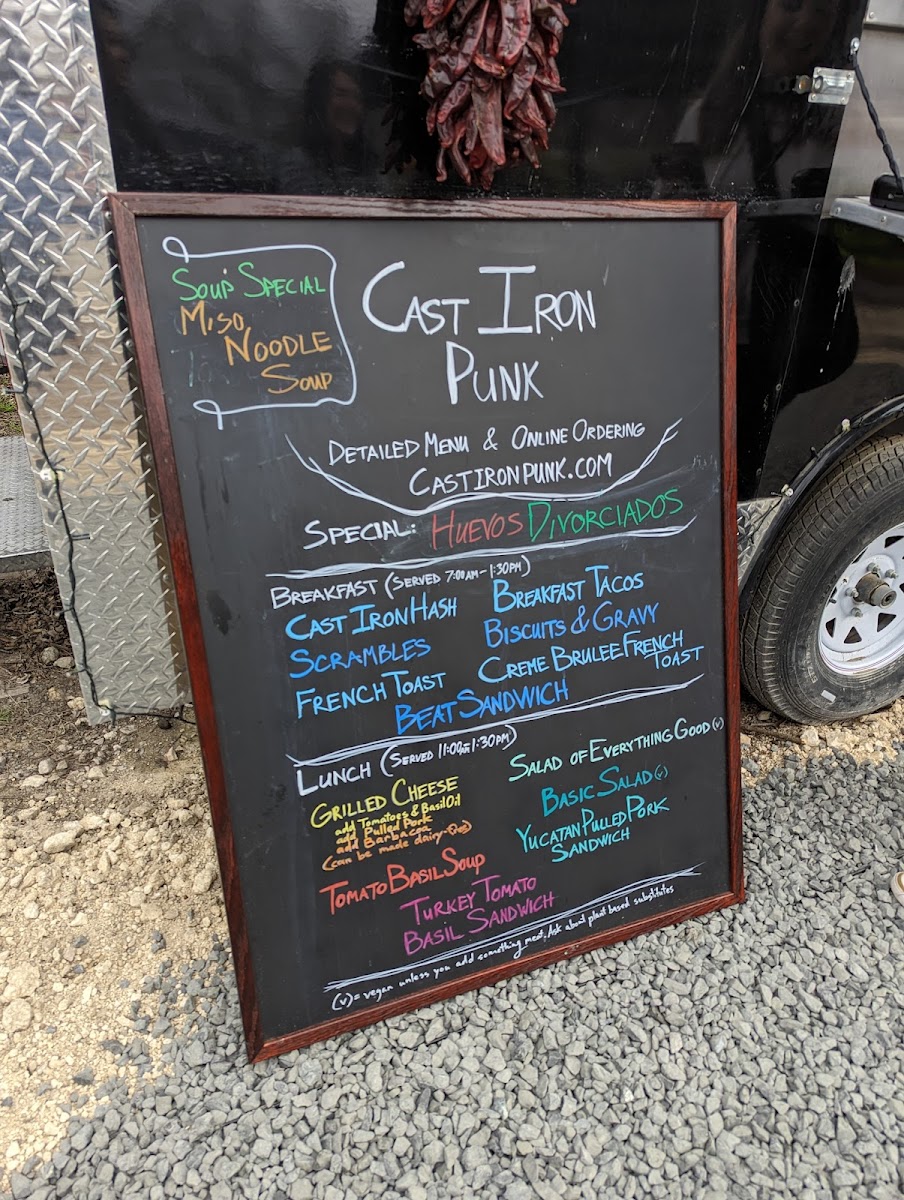 Soup Special
Miso
Noodle
Soup
Cast Iron
Punk
Detailed Menu & Online Ordering
CastIronPunk.com
Special: Huevos Divorciados
Breakfast (Served 7:00am-1:30pm)
Cast Iron Hash
Scrambles
French Toast
Breakfast Tacos
Biscuits & Gravy
Creme Brulee French
Toast
Beat Sandwich
Lunch (Served 11:00am-1:30pm)
Grilled Cheese
add Tomatoes & Basil Oil
add Pulled Pork
add Barbacoa
(can be made dairy-free)
Tomato Basil Soup
Salad of Everything Good (v)
Basic Salad (v)
Yucatan Pulled Pork
Sandwich
Turkey Tomato
Basil Sandwich
(v) = vegan unless you add something meat. Ask about plant based substitutes